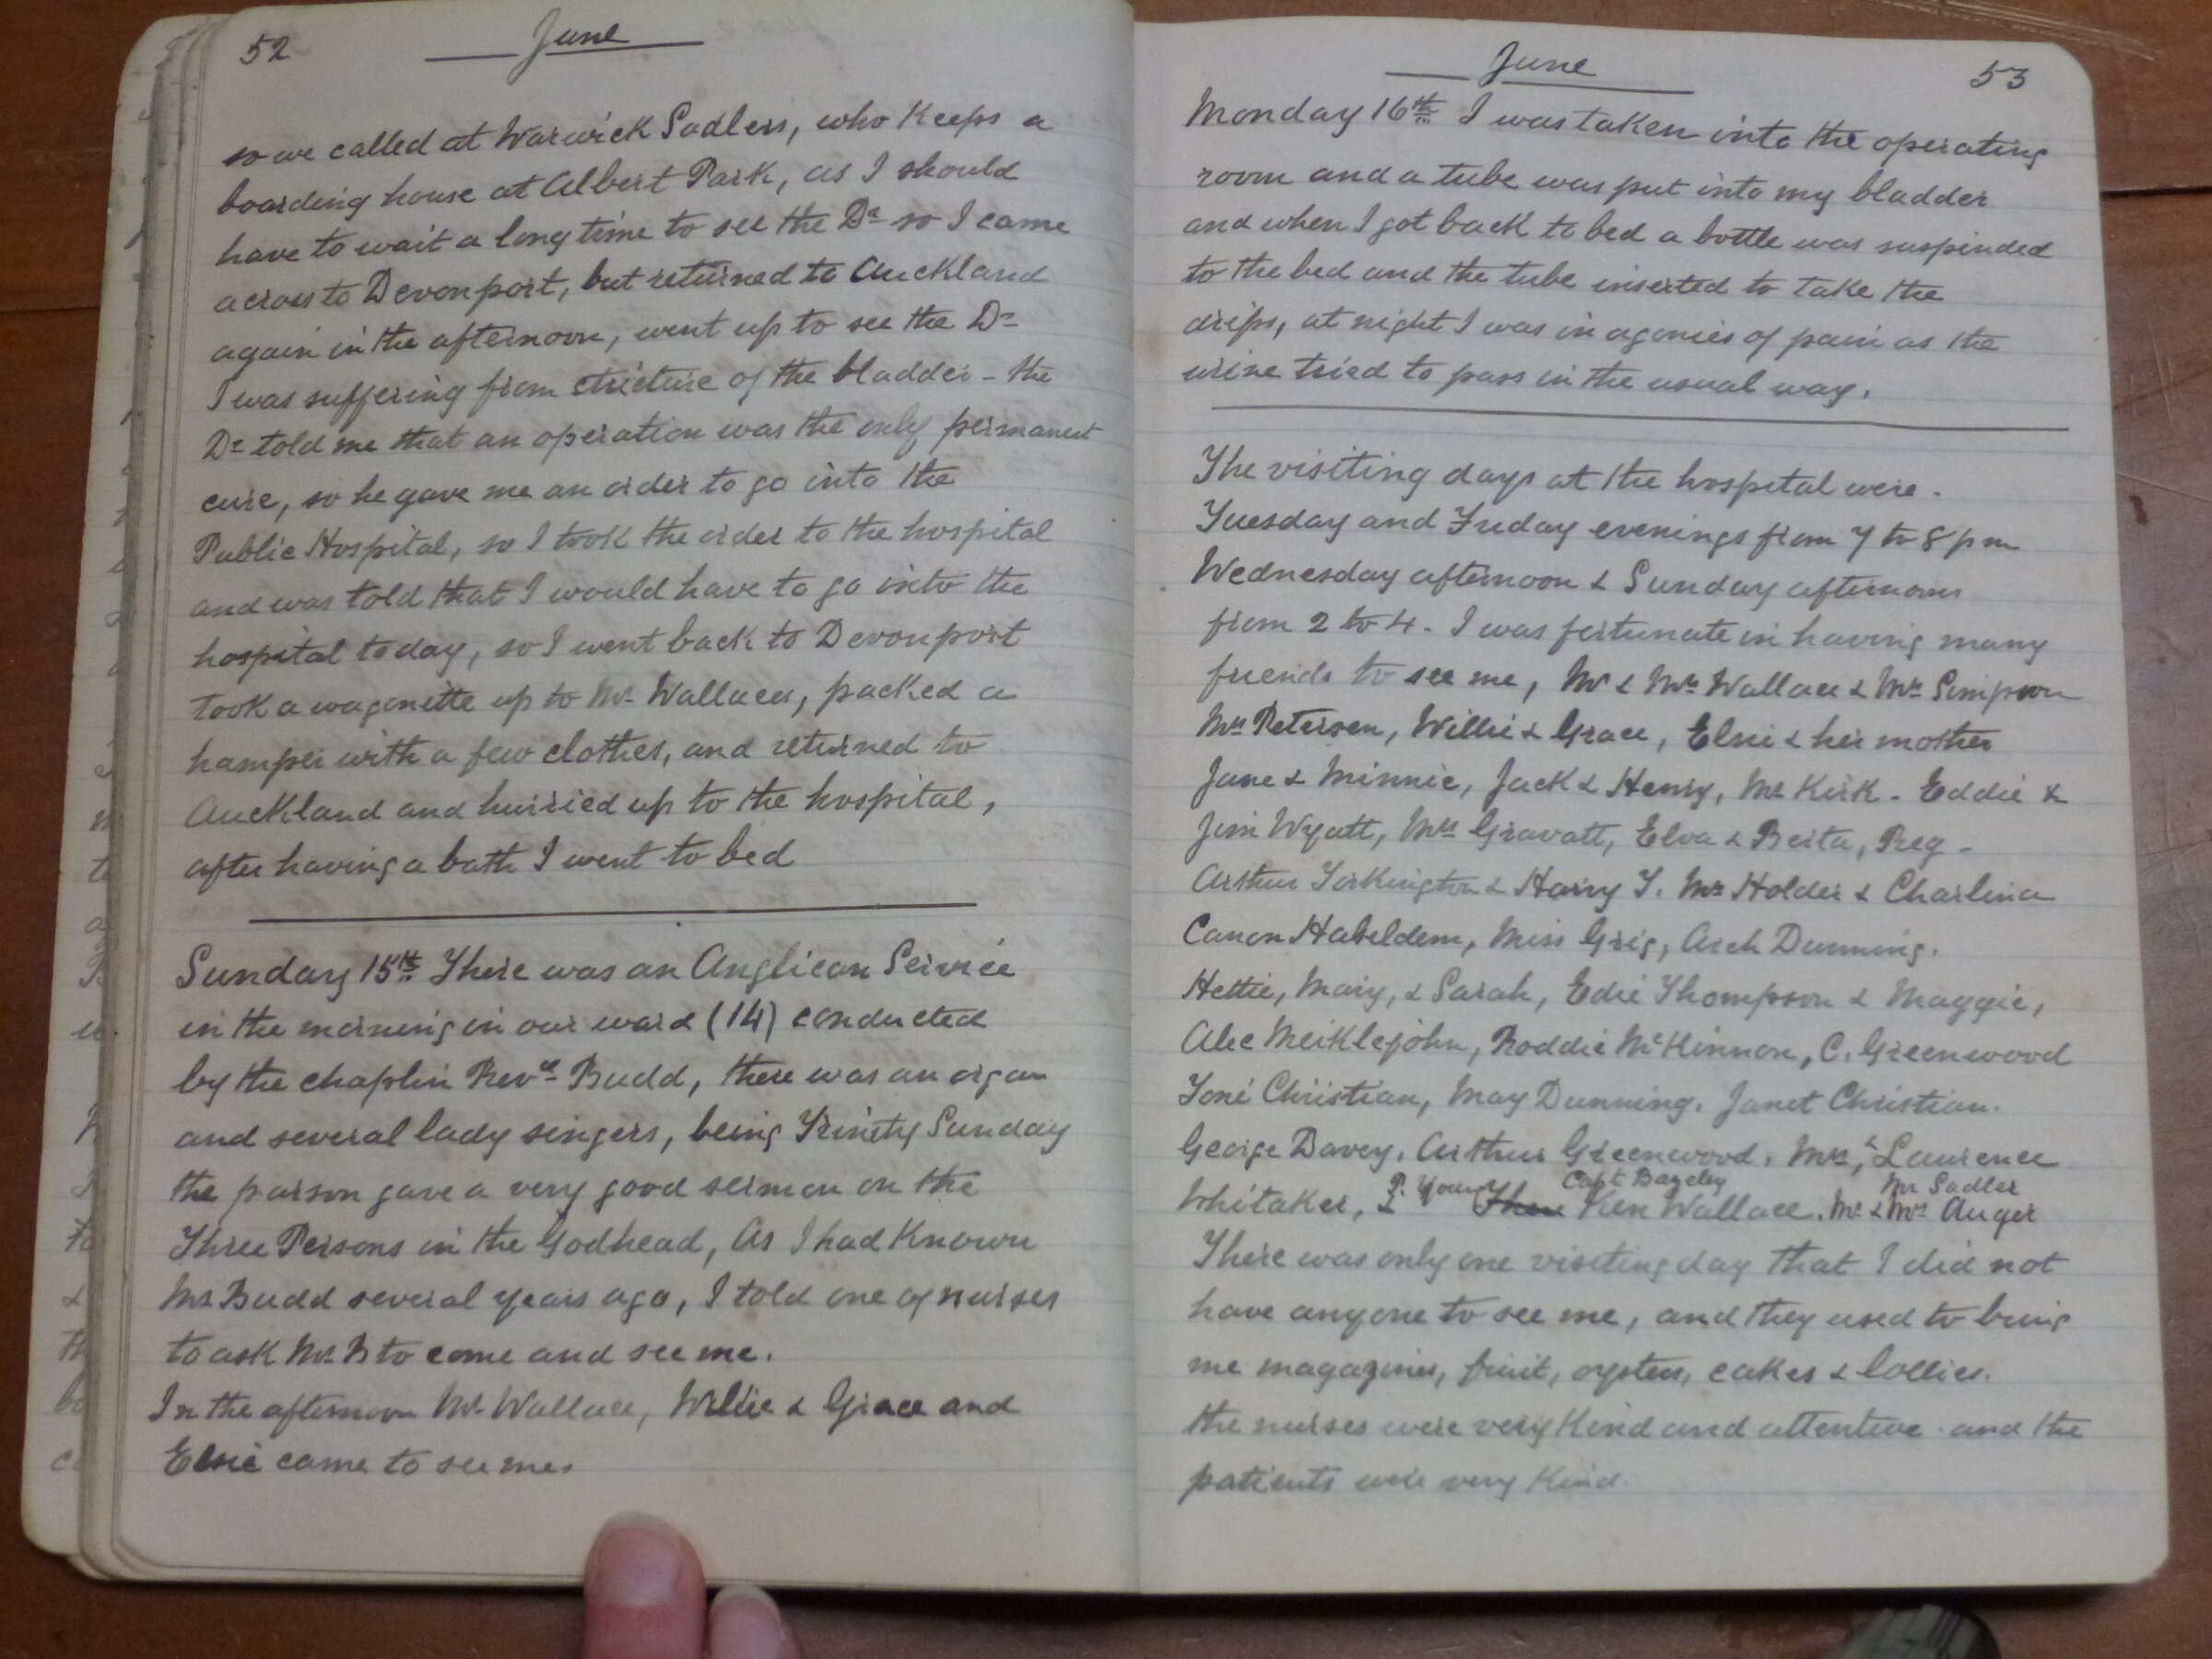 52
June
so we called at Warwick Sadlers, who Keeps a
boarding house at Albert Park, as I should
have to wait a long time to see the Dr so I came
across to Devonport, but returned to Auckland
again in the afternoon, went up to see the Dr
I was suffering from stricture of the bladder - the
Dr told me that an operation was the only permanent
cure, so he gave me an order to go into the
Public Hospital, so I took the order to the hospital
and was told that I would have to go into the
hospital today, so I went back to Devonport
took a wagonette up to Mr Wallaces, packed a
hamper with a few clothes, and returned to
Auckland and hurried up to the hospital,
after having a bath I went to bed
Sunday 15th There was an Anglican Service
in the morning in our ward (14) conducted
by the chaplin Revd Budd, there was an organ
and several lady singers, being Trinity Sunday
the parson gave a very good sermon on the
Three Persons in the Godhead, As I had Known
Mr Budd several years ago, I told one of nurses
to ask Mr B to come and see me.
In the afternoon Mr Wallace, Willie & Grace and
Elsie came to see me.
June
53
Monday 16th I was taken into the operating
room and a tube was put into my bladder
and when I got back to bed a bottle was suspinded
to the bed and the tube inserted to take the
drips, at night I was in agonies of pain as the
urine tried to pass in the usual way.
The visiting days at the hospital were.
Tuesday and Friday evenings from 7 to 8 pm
Wednesday afternoon & Sunday afternoons
from 2 to 4. I was fortunate in having many
friends to see me, Mr & Mrs Wallace & Mr Simpson
Mrs Petersen, Willie & Grace, Elsie & her mother
Jane & Minnie, Jack & Henry, Mr Kirk. Eddie &
Jim Wyatt, Mrs Gravatt, Elva & Berta, Reg -
Arthur Torkington & Harry T. Mr Holder & Charlina
Canon Haseldem, Miss Grig, Arch Dunning.
Hettie, Mary, & Sarah, Edie Thompson & Maggie,
Alec Meiklejohn, Roddie McKinnon, C. Greenwood
Toni Christian, May Dunning. Janet Christian.
George Davey. Arthur Greenwood. Mrs, & Laurence
P. Young Capt Bazeley Mr Sadler
Whitaker, & Ken Wallace. Mr & Mrs Auger
There was only one visiting day that I did not
have anyone to see me, and they used to bring
me magazines, fruit, oysters, cakes & lollies.
the nurses were very Kind and attentive. and the
patients were very Kind.